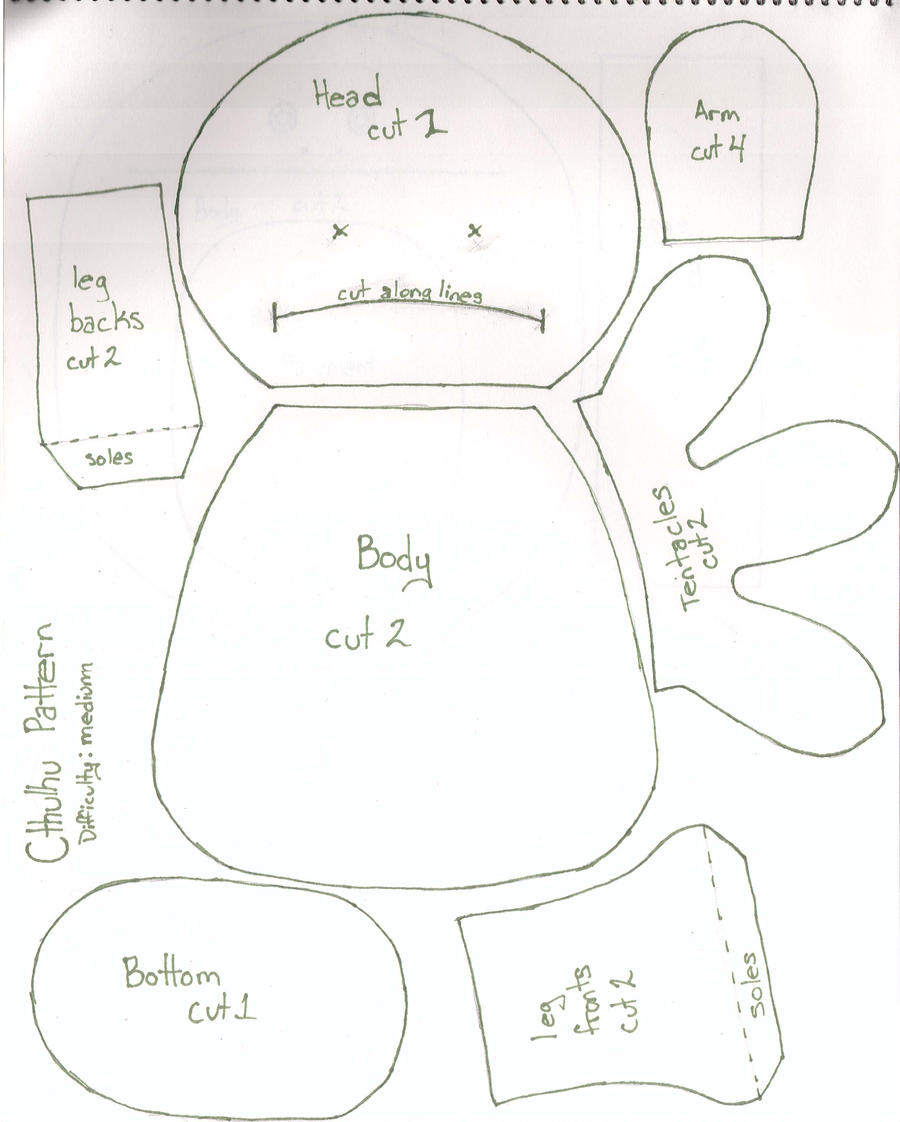 Head
cut
Arm
cut 4
leg
backs
cut 2
soles
cut along lines
Tentacles
cut 2
Body
cut 2
Cthulhu Pattern
Difficulty: medium
Bottom
cut 1
leg
fronts
cut 2
soles